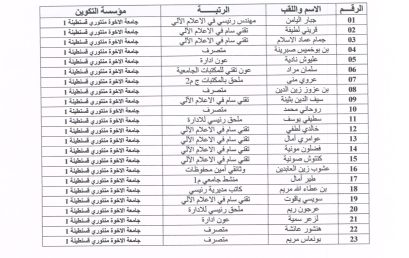 الرقم الاسم واللقب الرتبة مؤسسة التكوين
01 جبار اليامن مهندس رئيسي في الاعلام الآلي جامعة الاخوة منتوري قسنطينة 1
02 قريني لطيفة تقني سام في الاعلام الآلي جامعة الاخوة منتوري قسنطينة 1
03 حمام عماد الاسلام تقني سام في الاعلام الآلي جامعة الاخوة منتوري قسنطينة 1
04 بن بوخميس صبرينة متصرف جامعة الاخوة منتوري قسنطينة 1
05 عليوش نادية عون ادارة جامعة الاخوة منتوري قسنطينة 1
06 سلمان مراد عون تقني للمكتبات الجامعية جامعة الاخوة منتوري قسنطينة 1
07 عروي منى ملحق بالمكتبات ج م2 جامعة الاخوة منتوري قسنطينة 1
08 بن عزوز زين الدين متصرف جامعة الاخوة منتوري قسنطينة 1
09 سيف الدين بثينة تقني سام في الاعلام الآلي جامعة الاخوة منتوري قسنطينة 1
10 روحاني محمد متصرف جامعة الاخوة منتوري قسنطينة 1
11 سطيفي يوسف ملحق رئيسي للادارة جامعة الاخوة منتوري قسنطينة 1
12 خالدي لطفي تقني سام في الاعلام الآلي جامعة الاخوة منتوري قسنطينة 1
13 عوامري أمال تقني سام في الاعلام الآلي جامعة الاخوة منتوري قسنطينة 1
14 فضلون مونية تقني سام في الاعلام الآلي جامعة الاخوة منتوري قسنطينة 1
15 كنتوش صونية تقني سام في الاعلام الآلي جامعة الاخوة منتوري قسنطينة 1
16 عشوب زين العابدين وثائقي أمين محفوظات جامعة الاخوة منتوري قسنطينة 1
17 أمال منشط جامعي م1 جامعة الاخوة منتوري قسنطينة 1
18 بن عطاء الله مريم كاتب مديرية رئيسي جامعة الاخوة منتوري قسنطينة 1
19 سويسي ياقوت تقني سام في الاعلام الآلي جامعة الاخوة منتوري قسنطينة 1
20 عرجون ريم ملحق رئيسي للادارة جامعة الاخوة منتوري قسنطينة 1
21 لزعر سمية عون ادارة جامعة الاخوة منتوري قسنطينة 1
22 عائشة متصرف جامعة الاخوة منتوري قسنطينة 1
23 بونعاس مريم متصرف جامعة الاخوة منتوري قسنطينة 1